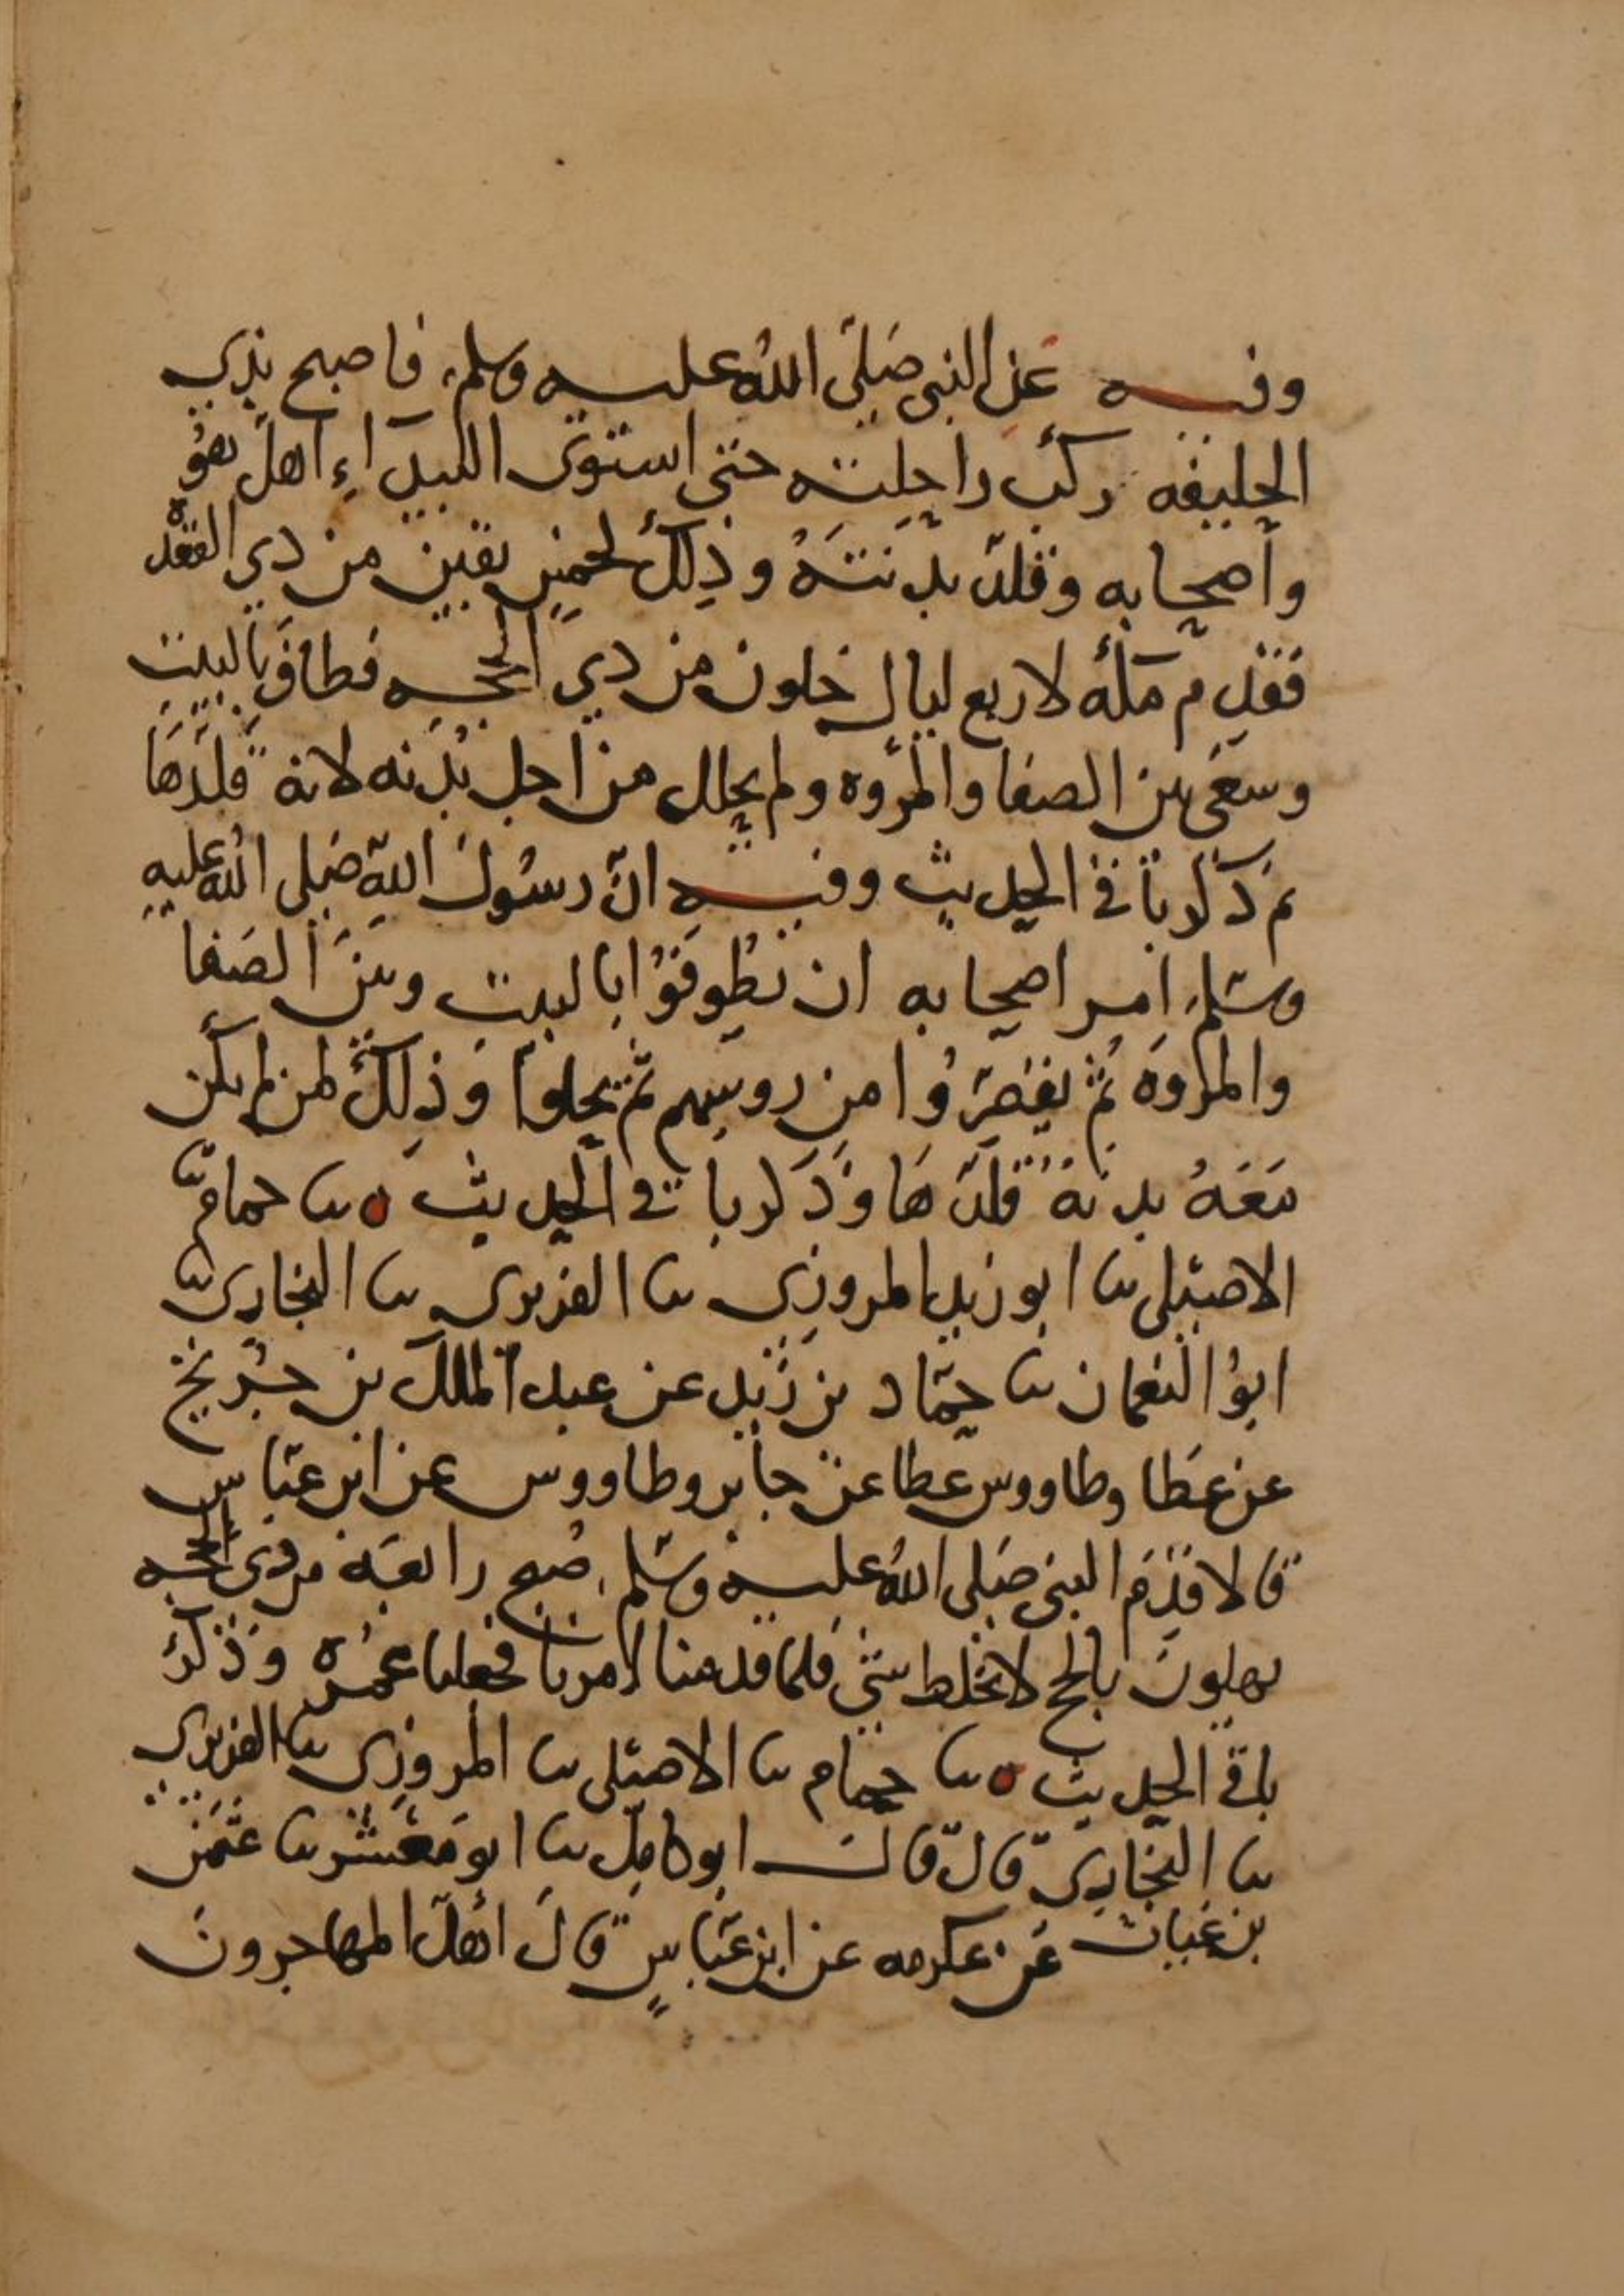 وفيه عن النبي صَلّى اللهُ عليه وسلم، فاصبح بذي
الحليفه ركب راحلته حتى استوى البيدآء اهلّ هُوَ
واصحابه وقلدّ بدنتهُ وذلك لخمسٍ بقين من ذي القعده
فقدم مكة لاربع ليالٍ خلون من ذي الحجه فطاف بالبيت
وسعى بين الصفا والمروه ولم يحلل من اجل بُدنه لانه قلّدَهَا
ثم ذكر باقي الحديث وفيه انّ رسُول اللهِ صَلى اللهُ عليه
وسَلم، امر اصحابه ان يطوفوا بالبيت وبينَ الصَفا
والمروَه ثم يقصِّرُوا من روسهم ثم يحلوا وَذلك لمن لم يكن
مَعَهُ بدنة قلّدهَا وذَكر باقي الحديث ه نا حمامٌ
الاصيلي نا ابو زيد المروزي نا الفربري نا البخاري نا
ابوُ النعمان نا حمّاد بن زيد عن عبد الملك بن جُريج
عن عَطا وطاووس عطا عن جابر وطاووس عن ابن عبّاس
قالا قدِمَ النبي صَلى اللهُ عليه وسَلم، صُبح رابعَة من ذي الحجه
يهلونَ بالحج لا يخلط شي فلما قدمنا امرنا فجعلنا عُمرَه وَذكر
باقي الحديث ه نا حمام نا الاصيلي نا المروزي نا الفربري
نا البخاري قال قال ابو كامِل نا ابو مَعشر نا عثمن
بن غياث عن عكرمه عن ابن عبّاسٍ قالَ اهلّ المهاجرونَ